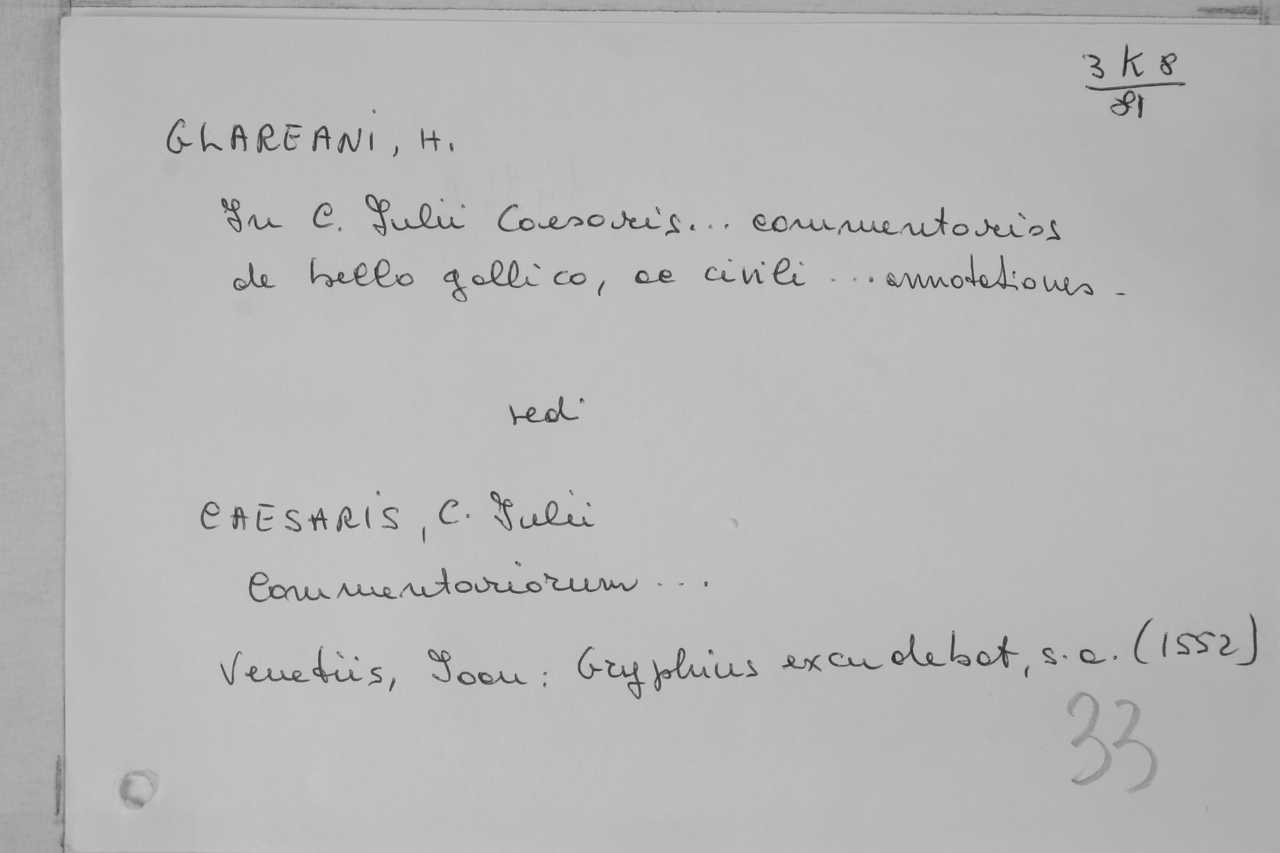 3 K 8
81
GLAREANI, H.
In C. Iulii Caesaris... commentarios
de bello gallico, ac civili ... annotationes -
vedi
CAESARIS, C. Iulii
Commentariorum ...
Venetiis, Ioan: Gryphius excudebat, s.a. (1552)
33